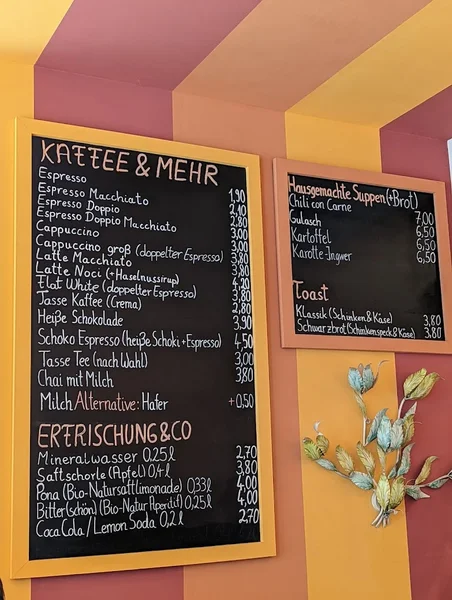 KAFFEE & MEHR
Espresso 1,90
Espresso Macchiato 2,10
Espresso Doppio 2,80
Espresso Doppio Macchiato 3,00
Cappuccino 3,00
Cappuccino groß (doppelter Espresso) 3,80
Latte Macchiato 3,80
Latte Noci (+Haselnusssirup) 4,20
Flat White (doppelter Espresso) 3,80
Tasse Kaffee (Crema) 2,80
Heiße Schokolade 3,90
Schoko Espresso (heiße Schoki + Espresso) 4,50
Tasse Tee (nach Wahl) 3,00
Chai mit Milch 3,80
Milch Alternative: Hafer +0,50
ERFRISCHUNG & CO
Mineralwasser 0,25 l 2,70
Saftschorle (Apfel) 0,4 l 3,80
Pona (Bio-Natursaftlimonade) 0,33 l 4,00
Bitter(schön) (Bio-Natur Aperitif) 0,25 l 4,00
Coca Cola / Lemon Soda 0,2 l 2,70
Hausgemachte Suppen (+Brot)
Chili con Carne 7,00
Gulasch 6,50
Kartoffel 6,50
Karotte-Ingwer 6,50
Toast
Klassik (Schinken & Käse) 3,80
Schwarzbrot (Schinkenspeck & Käse) 3,80